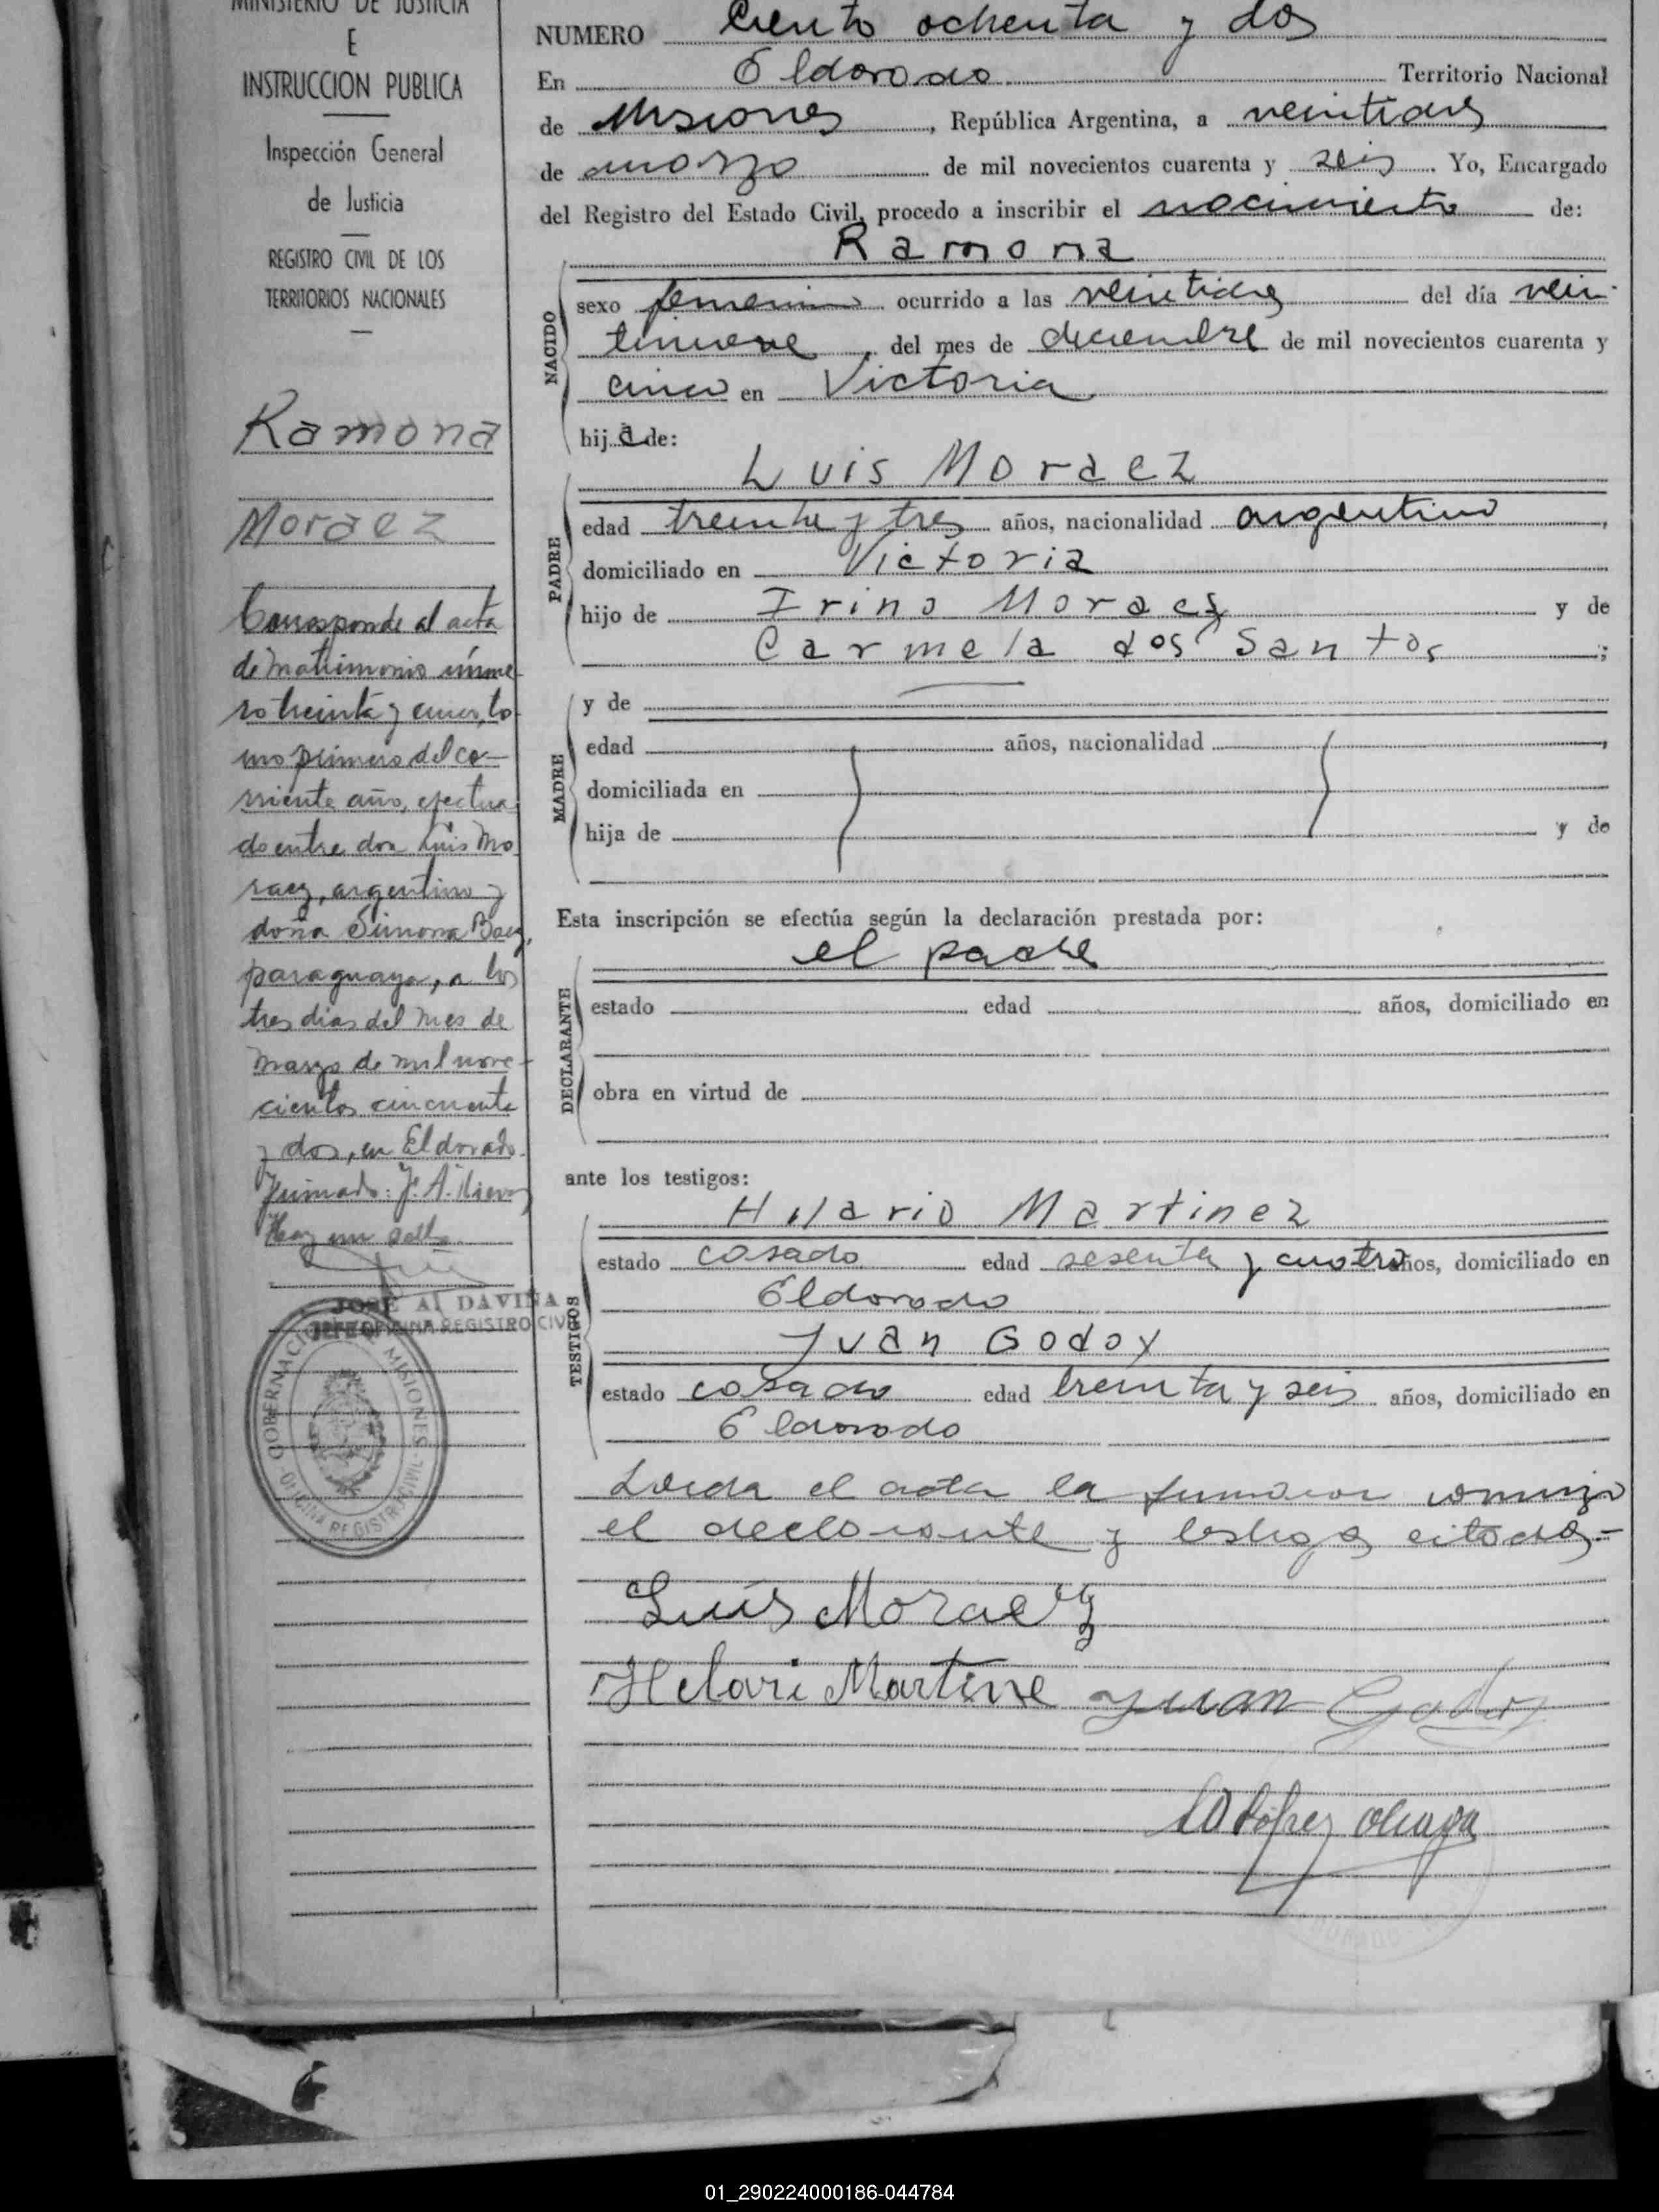 MINISTERIO DE JUSTICIA
E
INSTRUCCION PUBLICA
Inspección General
de Justicia
REGISTRO CIVIL DE LOS
TERRITORIOS NACIONALES
Ramona
Moraez
Corresponde al acta
de matrimonio núme-
ro treinta y cinco, to-
mo primero del co-
rriente año, efectua-
do entre don Luis Mo-
raez, argentino y
doña Simona Baez,
paraguaya, a los
tres dias del mes de
marzo de mil nove-
cientos cincuenta
y dos, en Eldorado.
Firmado: J. A.
Hay un sello.
JOSE A. DAVIÑA
JEFE OFICINA REGISTRO CIVIL
GOBERNACION MISIONES
OFICINA REGISTRO CIVIL
NUMERO Ciento ochenta y dos
En Eldorado Territorio Nacional
de Misiones, República Argentina, a veintidos
de marzo de mil novecientos cuarenta y seis. Yo, Encargado
del Registro del Estado Civil, procedo a inscribir el nacimiento de:
NACIDO
Ramona
sexo femenino ocurrido a las veintidos del día vein-
tinueve, del mes de diciembre de mil novecientos cuarenta y
cinco en Victoria
hija de:
PADRE
Luis Moraez
edad treinta y tres años, nacionalidad argentino,
domiciliado en Victoria
hijo de Irino Moraez y de
Carmela dos Santos;
MADRE
y de
edad años, nacionalidad ,
domiciliada en
hija de y de
Esta inscripción se efectúa según la declaración prestada por:
DECLARANTE
el padre
estado edad años, domiciliado en
obra en virtud de
ante los testigos:
TESTIGOS
Hilario Martinez
estado casado edad sesenta y cuatro años, domiciliado en
Eldorado
Juan Godoy
estado casado edad treinta y seis años, domiciliado en
Eldorado
Leida el acta la firmaron conmigo
el declarante y testigos citados.-
Luis Moraez
Helari Martine Juan Godoy
López
01_290224000186-044784